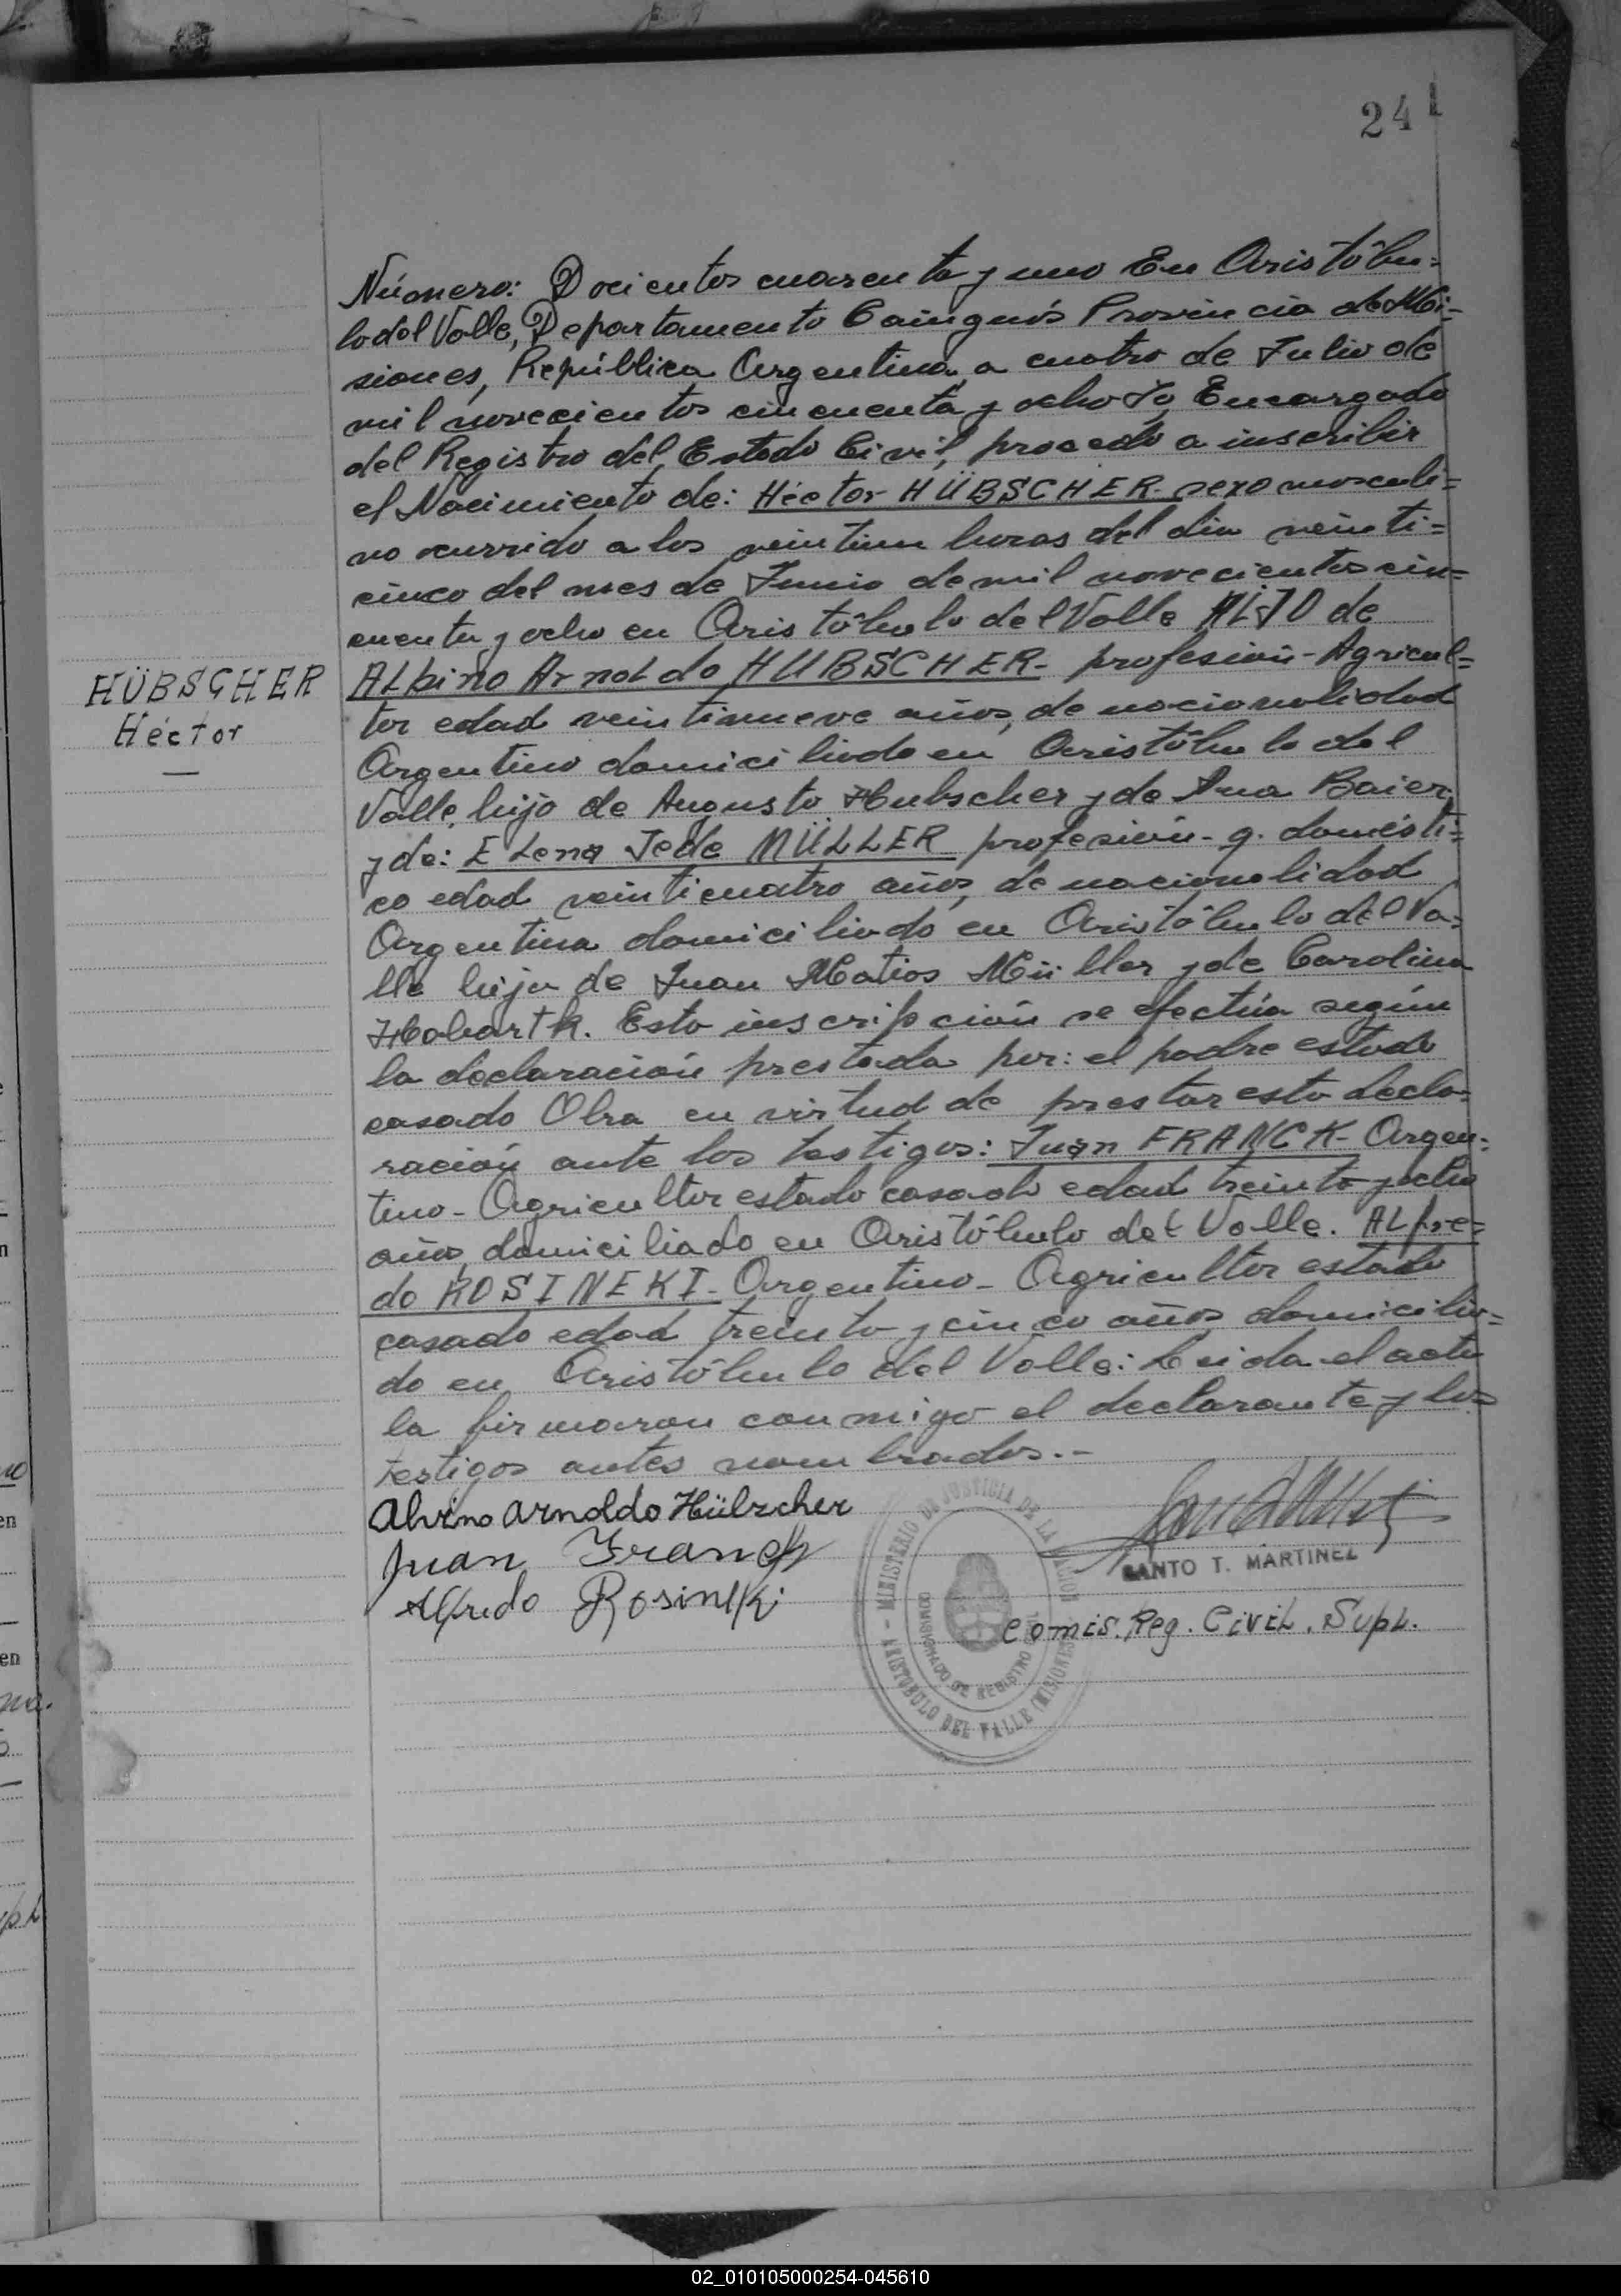 241
Número: Docientos cuarenta y uno En Aristóbu=
lo del Valle, Departamento Cainguás Provincia de Mi=
siones, República Argentina, a cuatro de Julio de
mil novecientos cincuenta y ocho Yo, Encargado
del Registro del Estado Civil, procedo a inscribir
el Nacimiento de: Héctor HÜBSCHER- sexo masculi=
no ocurrido a las veintiun horas del dia veinti=
cinco del mes de Junio de mil novecientos cin=
cuenta y ocho en Aristóbulo del Valle HIJO de
HÜBSCHER
Héctor
ALbino ArnoLdo HUBSCHER- profesión- Agricul=
tor edad veintinueve años, de nacionalidad
Argentino domiciliado en Aristóbulo del
Valle, hijo de Augusto Hubscher y de Ana Baier.
y de: ELena Jede MÜLLER profesión- q. domésti=
co edad veinticuatro años, de nacionalidad
Argentina domiciliado en Aristóbulo del Va=
lle hija de Juan Matios Müller y de Carolina
Hobartk. Esta inscripción se efectúa según
la declaración prestada por: el padre estado
casado Obra en virtud de prestar esta decla=
ración ante los testigos: Juan FRANCK- Argen=
tino- Agricultor estado casado edad treinta y ocho
años, domiciliado en Aristóbulo del Valle. ALfre=
do ROSINEKI- Argentino- Agricultor estado
casado edad treinta y cinco años domicilia=
do en Aristóbulo del Valle: Leida el acta
la firmaron conmigo el declarante y los
testigos antes nombrados.-
Alvino Arnoldo Hübscher
Juan Franck
Alfredo Rosineki
SANTO T. MARTINEZ
Comis. Reg. Civil. Supl.
MINISTERIO DE JUSTICIA DE LA NACION
COMISIONADO DE REGISTRO
ARISTOBULO DEL VALLE (MISIONES)
02_010105000254-045610